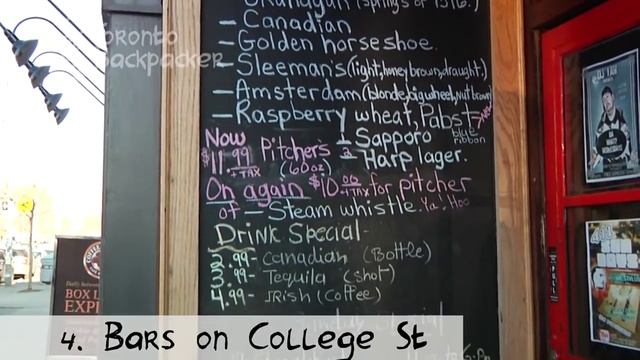 Okanagan (springs of 1516.)
- Canadian
- Golden horseshoe.
- Sleeman's (light, honey brown, draught.)
- Amsterdam (blonde, big wheel, Nut brown)
- Raspberry wheat, Pabst
blue ribbon
- Sapporo
- Harp lager.
Now
$11.99 Pitcher's
+TAX (60oz)
On again $10.00 +TAX for pitcher
of - Steam whistle. Ya! Hoo
Drink Special -
2.99 - Canadian (Bottle)
3.99 - Tequila (shot)
4.99 - Irish (Coffee)
TORONTO
BACKPACKER
BOX L
EXP
PULL
4. Bars on College St